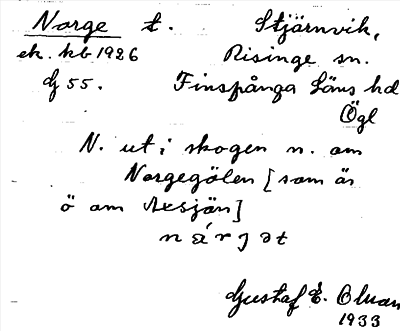 Norge t. Stjärnvik,
ek. kb 1926 Risinge sn.
G 55. Finspånga Läns hd
Ögl
N. ut i skogen n. om
Norgegölen [som är
ö om Axsjön]
Gustaf E. Olman
1933